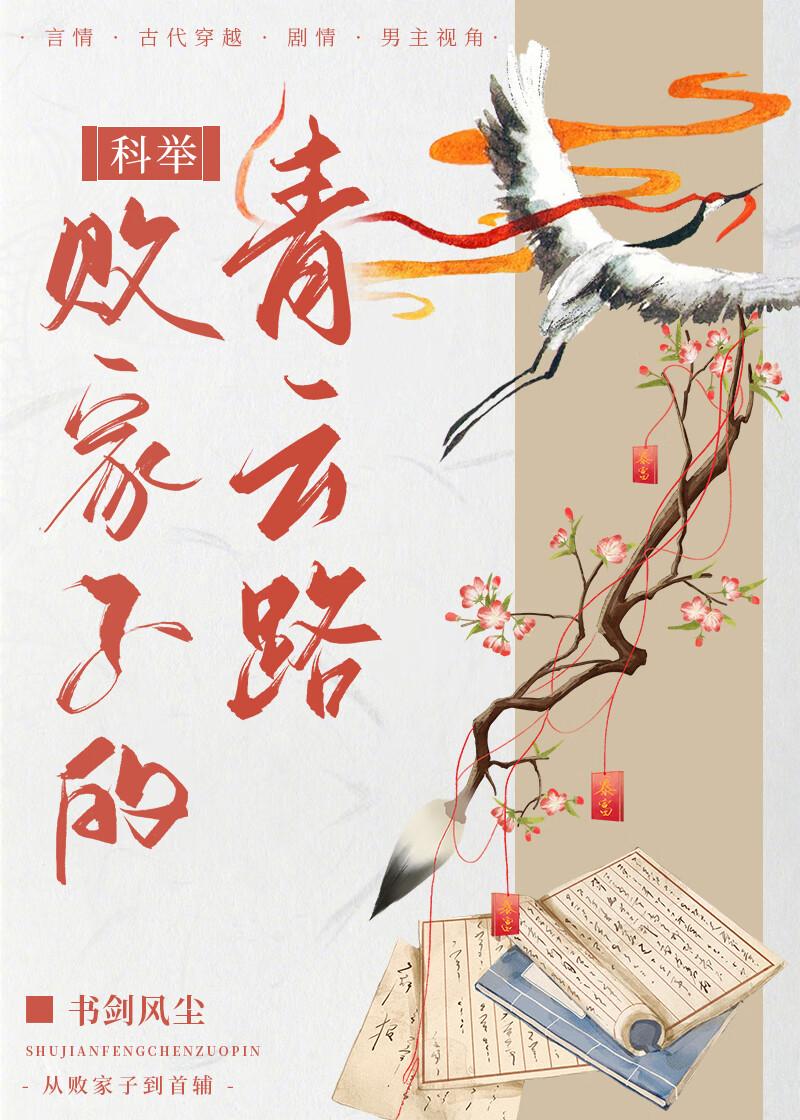 · 言情 · 古代穿越 · 剧情 · 男主视角 ·
科举
败家子的
青云路
泰富
泰富
泰富
书剑风尘
SHUJIANFENGCHENZUOPIN
- 从败家子到首辅 -